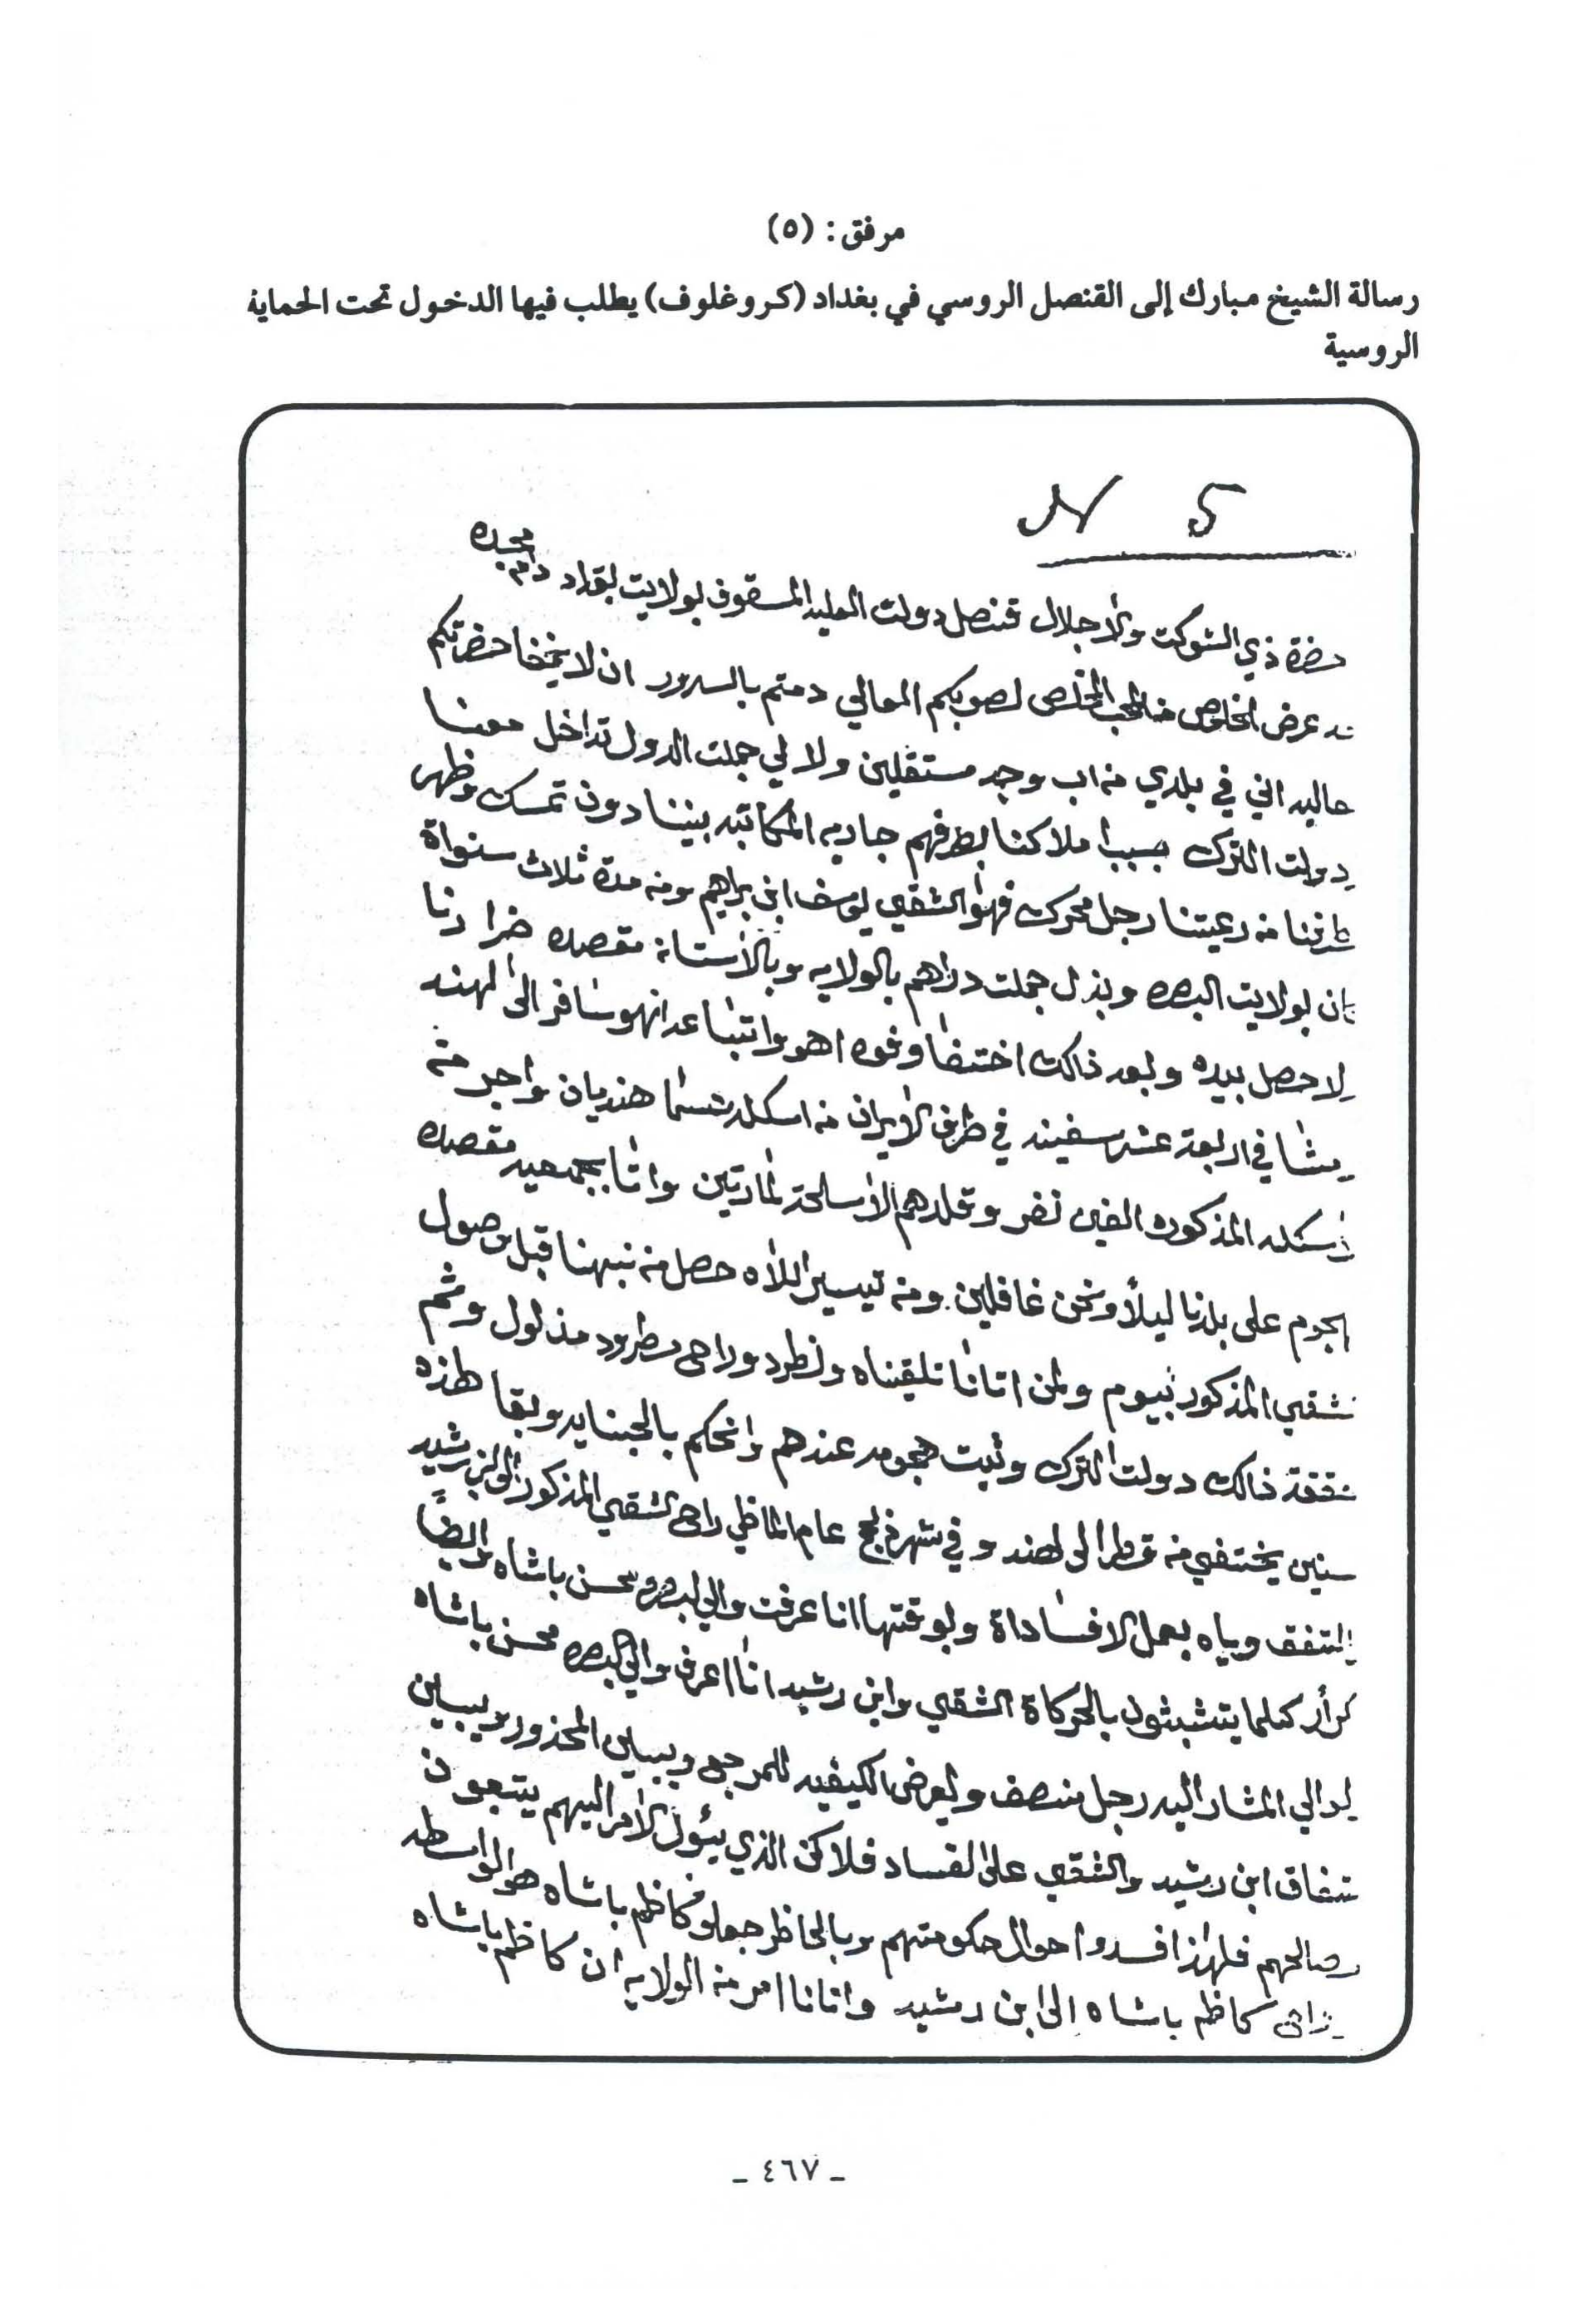 مرفق: (٥)
رسالة الشيخ مبارك إلى القنصل الروسي في بغداد (كروغلوف) يطلب فيها الدخول تحت الحماية
الروسية
N 5
حضرة ذي الشوكت والاجلال قنصل دولت العليه المسقوف بولايت بقداد دام مجده
عرض الخلوص من المحب المخلص لصوبكم العالي دمتم بالسرور ان لا يخفا حضرتكم
حاليه اني في بلدي من اب وجد مستقلين ولا لي جملت الدول تداخل معنا
دولت الترك بسبب املاكنا بطرفهم جاريه المكاتبه بيننا دون تمسك وظهر
طرفنا من رعيتنا رجل محرك فهوا الشقي يوسف ابن براهيم ومنه مدة ثلاث سنواة
بولايت البصره وبذل جملت دراهم بالولايه وبالأستانه مقصده ضرارنا
لا حصل بيده وبعد ذالك اختفا وخوه اهو واتباعه انهو سافر الى الهند
في اربعة عشر سفينه في طرف الايران من اسكله تسما هنديان واجر منه
المذكوره الفين نفر وقلدهم الأسلحة لمارتين واتا بجمعيه مقصده
على بلدنا ليلاً ونحن غافلين ومنه تيسير اللاه حصل منه نبهنا قبل وصول
المذكور بيوم ولمن اتانا تلقيناه ونطرد وراح مطرود مذلول وثم
ذالك دولت الترك وثبت هجومه عندهم وانحكم بالجنايه وبقا هذه
سنين يختفي منه قطر الى لهند وفي شهر ذلحج عام الماظي راح الشقي المذكور الى ابن رشيد
المتفق وياه بعمل الافساداة وبوقتها انا عرفت والي البصره محسن باشاه وايضاً
كلما يتشبثون بالحركاة الشقي وابن رشيد انا اعرف والي البصره محسن باشاه
لوالي المشار اليه رجل منصف ويعرض الكيفيه للمرجع ويبين المحذور ويبين
ابن رشيد والشقي على الفساد فلاكن الذي يئول الأمر اليهم يتبعون
فلهاذا افسدوا احوال حكومتهم وبالحاظر جعلو كاظم باشاه هو الواسطه
كاظم باشاه الى ابن رشيد واتانا امر منه الولايه ان كاظم باشاه
- ٤٦٧ -